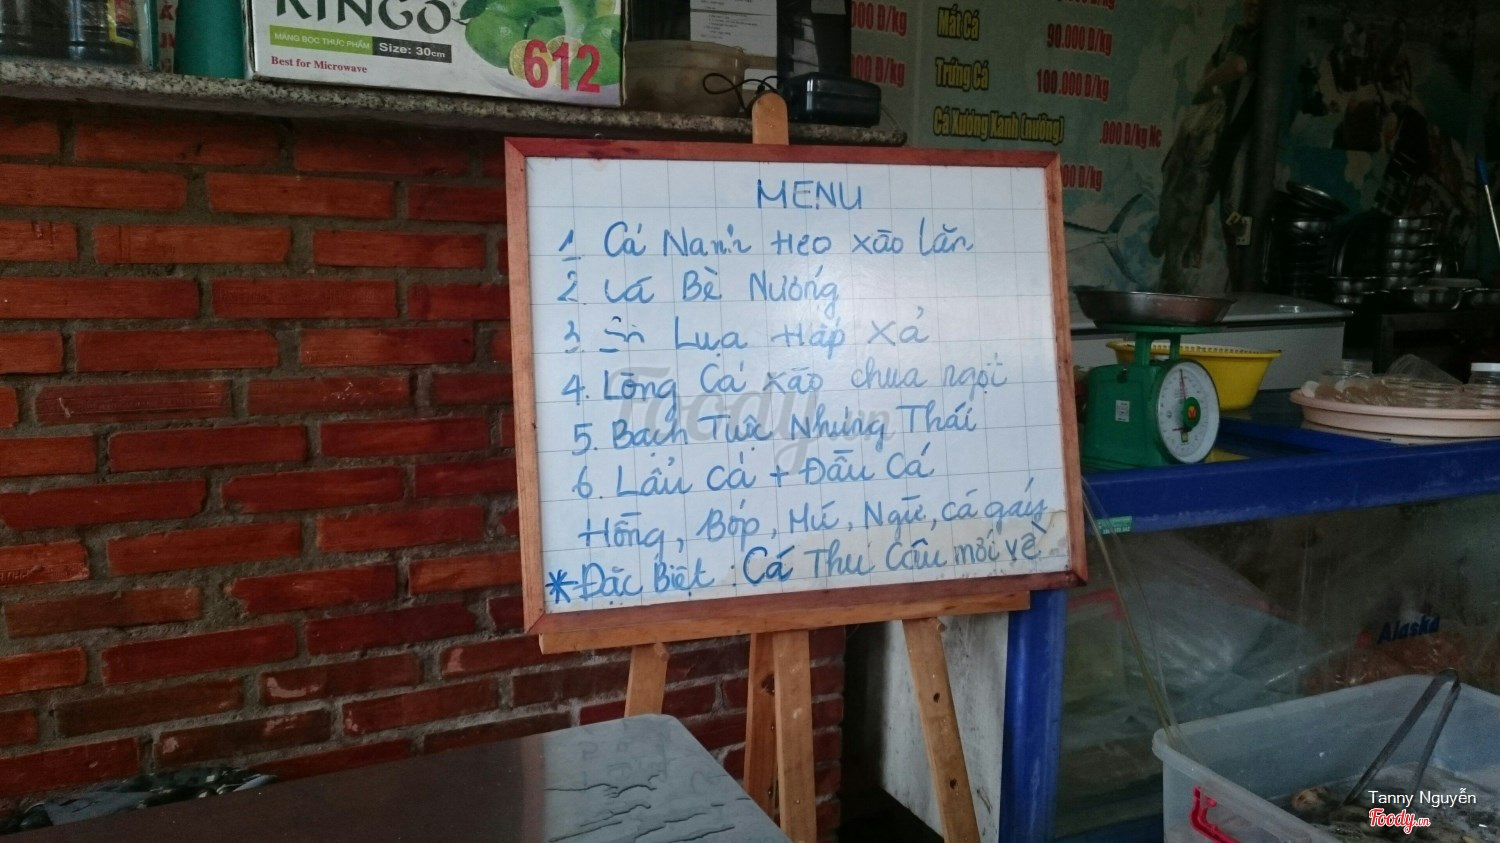 RINGO
MÀNG BỌC THỰC PHẨM Size: 30cm
Best for Microwave
612
000 Đ/kg
000 Đ/kg
Mắt Cá 90.000 Đ/kg
Trứng Cá 100.000 Đ/kg
Cá Xương Xanh (nướng) .000 Đ/kg
000 Đ/kg
MENU
1 Cá Nanh Heo xào lăn
2 Cá Bè Nướng
3 Lụa Hấp Xả
4. Lòng Cá xào chua ngọt
5. Bạch Tuộc Nhúng Thái
6. Lẩu cá + Đầu Cá
Hồng, Bớp, Mú, Ngừ, cá gáy
* Đặc Biệt: Cá Thu Câu mới về
Foody.vn
Alaska
Tanny Nguyễn
Foody.vn